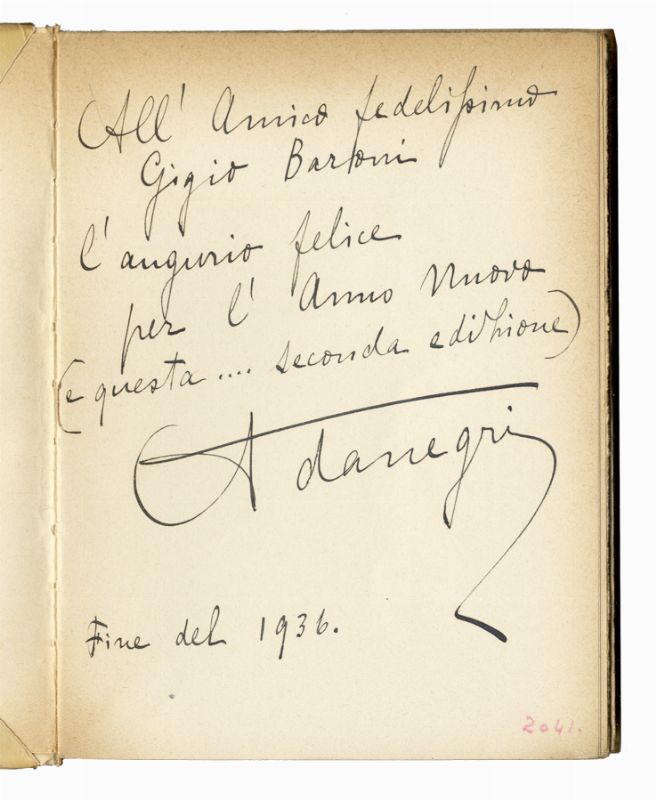 All' Amico fedelissimo
Gigio Bartoni
l'augurio felice
per l' Anno Nuovo
(e questa .... seconda edizione)
Adanegri
Fine del 1936.
2041.